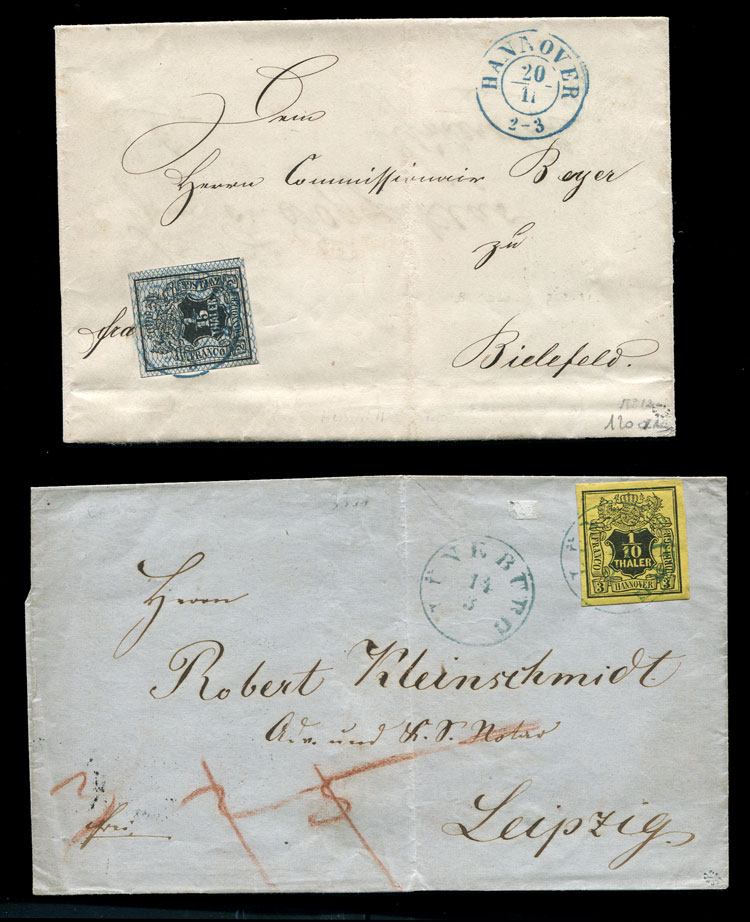 HANNOVER
20
11
2-3
Dem
Herrn Commissionair Beyer
zu
Bielefeld.
fra
1/15
THALER
FRANCO
120
LÜNEBURG
14
5
1/10
THALER
FRANCO
3 HANNOVER 3
Herrn
Robert Kleinschmidt
Adv. und K. S. Notar
Leipzig.
frei